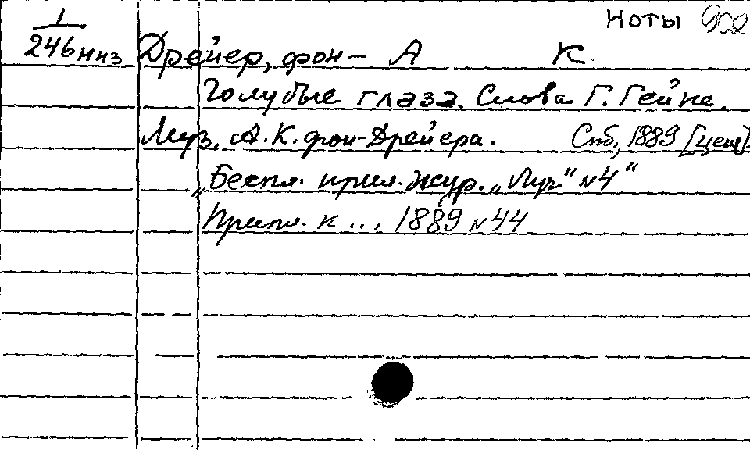 1 Ноты 902
246 ннз Дрейер, фон- А К.
Голубые глаза. Слова Г. Гейне.
Муз. А. К. фон-Дрейера. Спб, 1889 [ценз].
„Беспл. прил. жур. „Луч“ №4“
Прилож. к ... 1889 №44